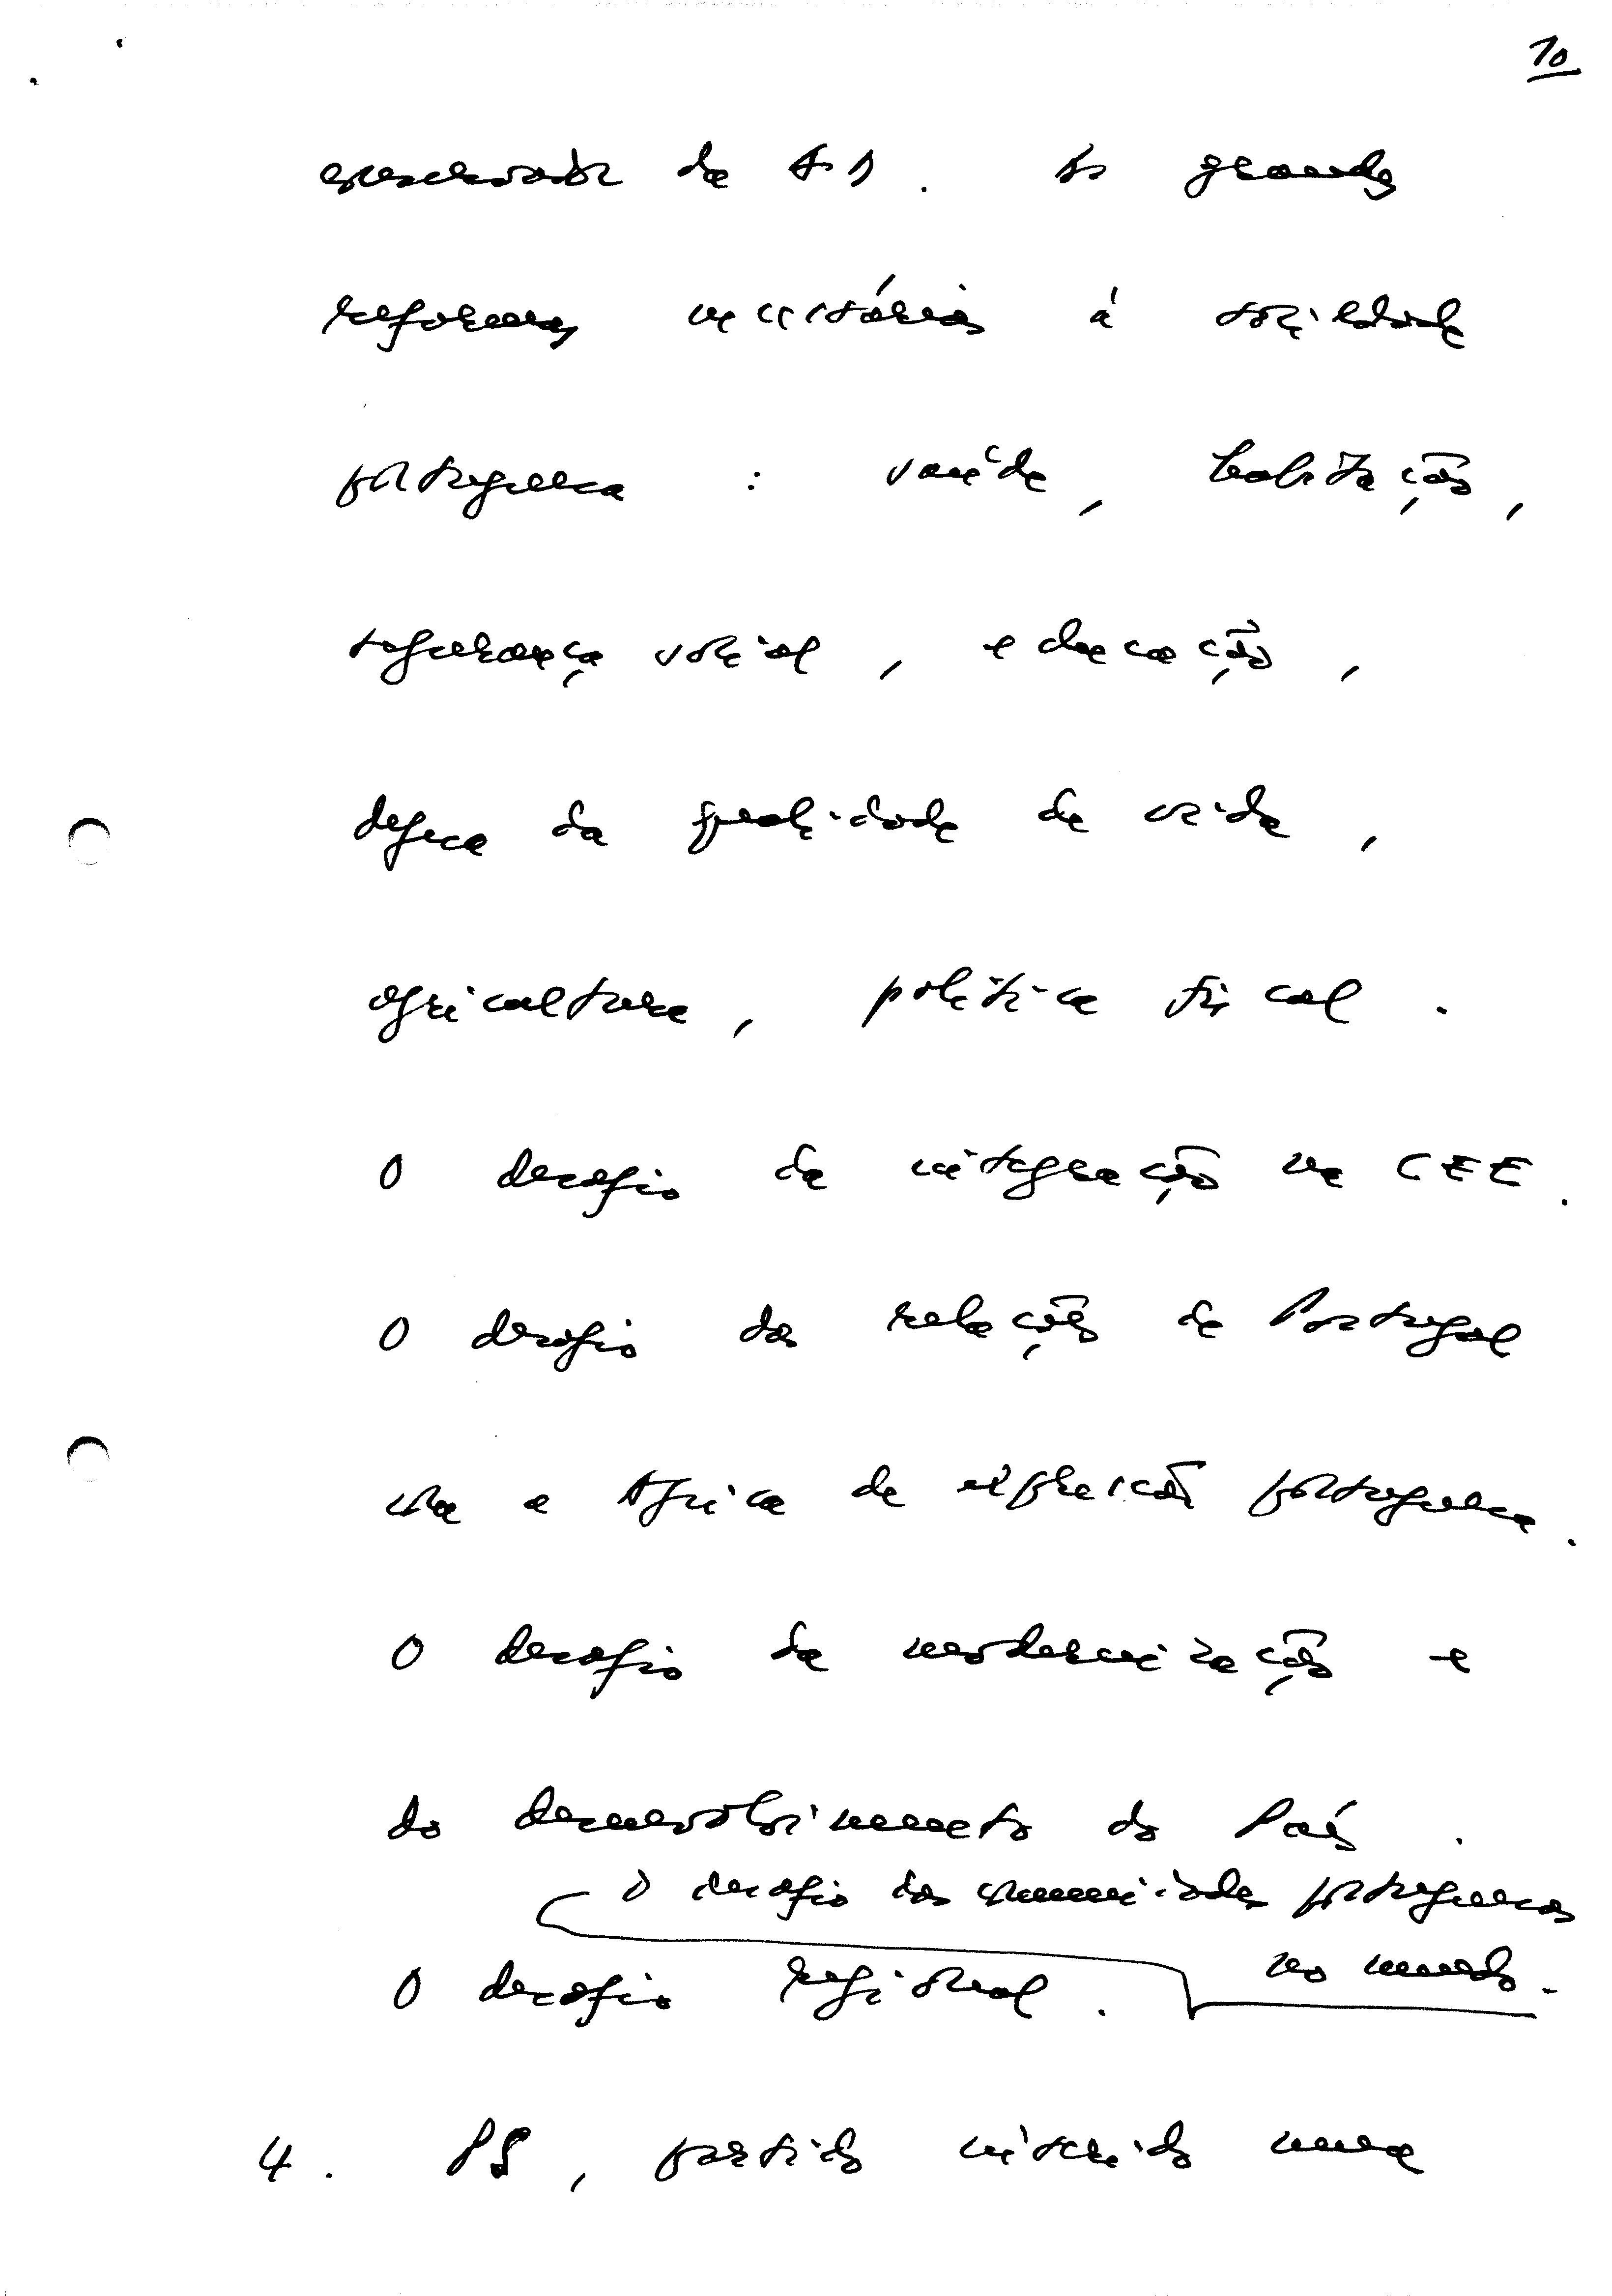 10
conservador da AD. As grandes
reformas necessárias à sociedade
portuguesa : saúde, habitação,
segurança social, educação,
defesa da qualidade de vida,
agricultura, política fiscal.
O desafio da integração na CEE.
O desafio das relações de Portugal
com a Africa de expressão portuguesa.
O desafio da modernização e
do desenvolvimento do País.
O desafio das comunidades portuguesas
no mundo.
O desafio regional.
4. PS, partido inserido numa